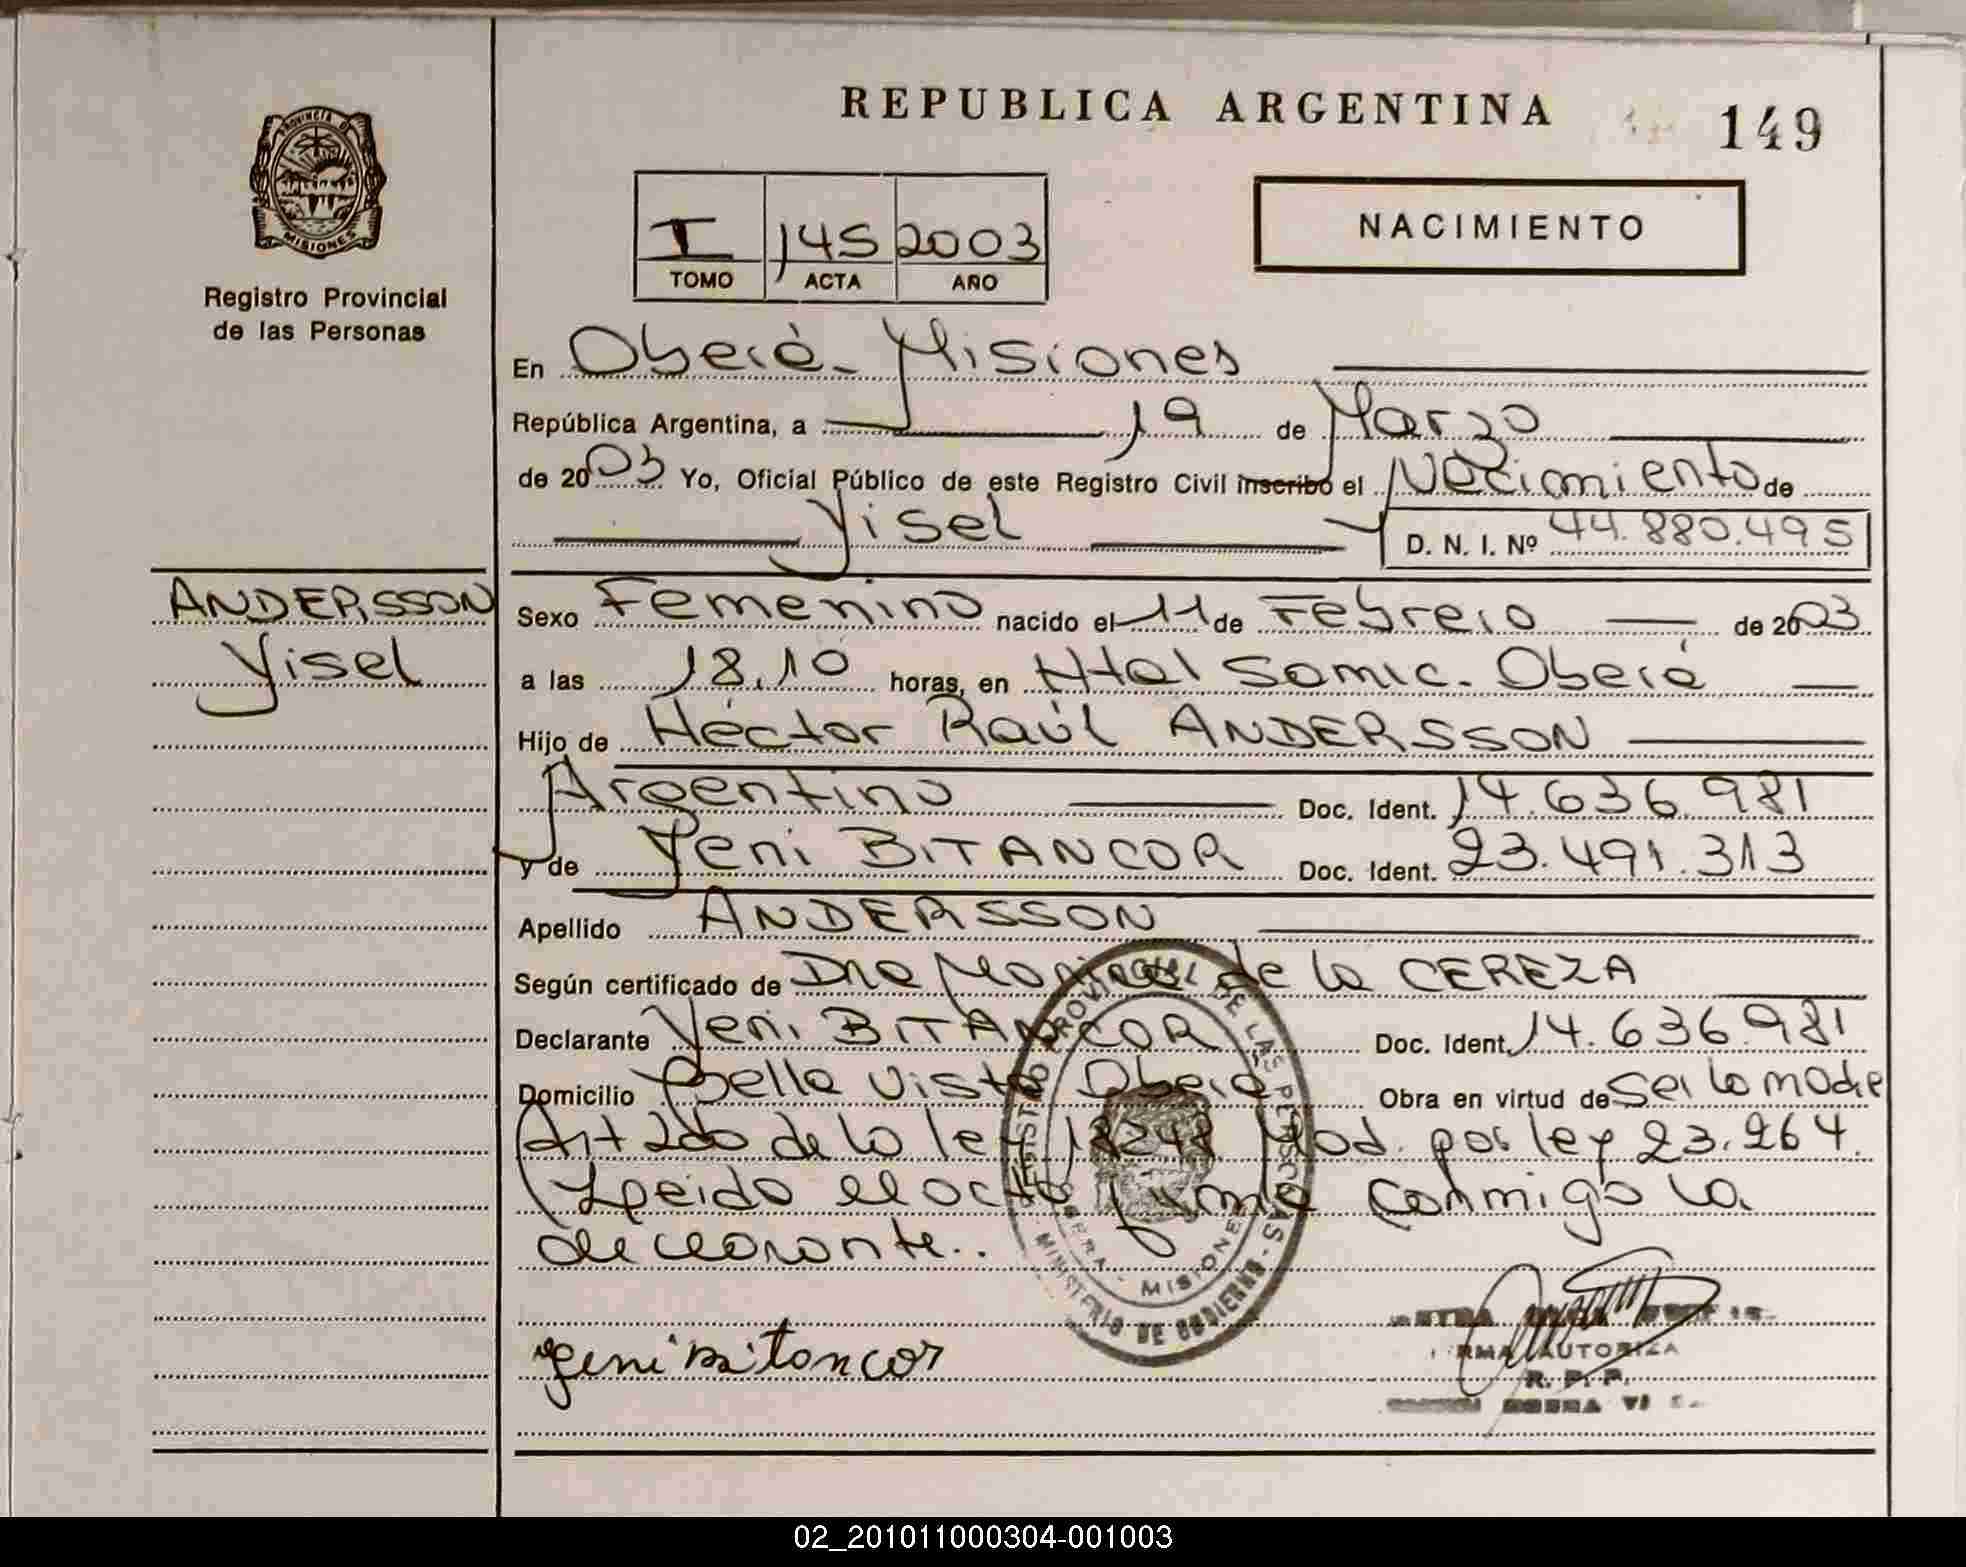 REPUBLICA ARGENTINA
149
PROVINCIA DE
MISIONES
Registro Provincial
de las Personas
I 145 2003
TOMO ACTA AÑO
NACIMIENTO
En Oberá - Misiones
República Argentina, a 19 de Marzo
de 2003 Yo, Oficial Público de este Registro Civil inscribo el Nacimiento de
Yisel
D. N. I. Nº 44.880.495
ANDERSSON
Yisel
Sexo Femenino nacido el 11 de Febrero de 2003
a las 18,10 horas, en Htal Samic. Oberá
Hijo de Héctor Raúl ANDERSSON
Argentino Doc. Ident. 14.636.981
y de Yeni BITANCOR Doc. Ident. 23.491.313
Apellido ANDERSSON
Según certificado de Dra Monica de la CEREZA
Declarante Yeni BITANCOR Doc. Ident. 14.636.981
Domicilio Bella Vista Oberá Obra en virtud de Ser la madre
Art 2do de la ley 18248 Mod. por ley 23.264.
Leido el acta firma conmigo la
declarante..
REGISTRO PROVINCIAL DE LAS PERSONAS
MINISTERIO DE GOBIERNO
MISIONES
yeni Bitancor
AUTORIZA
R. P. P.
02_201011000304-001003